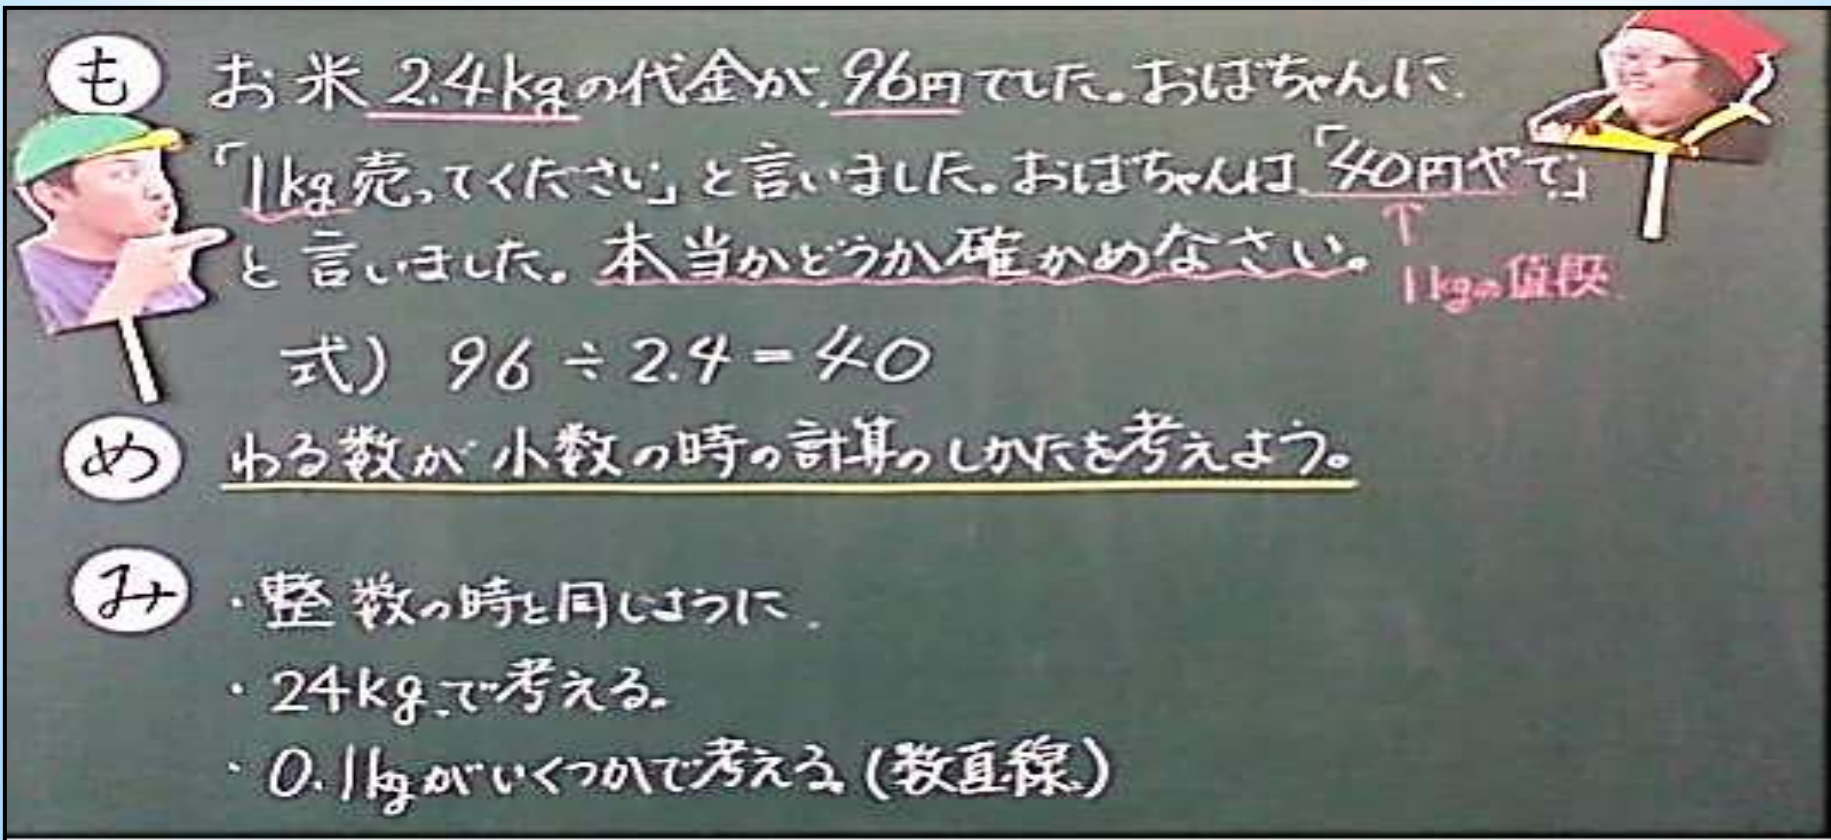 も お米2.4kgの代金が、96円でした。おばちゃんに、
「1kg売ってください」と言いました。おばちゃんは、「40円やで」
と言いました。本当かどうか確かめなさい。
↑
1kgの値段
式) 96÷2.4=40
め わる数が小数の時の計算のしかたを考えよう。
み ・整数の時と同じように、
・24kgで考える。
・0.1kgがいくつかで考える。(数直線)